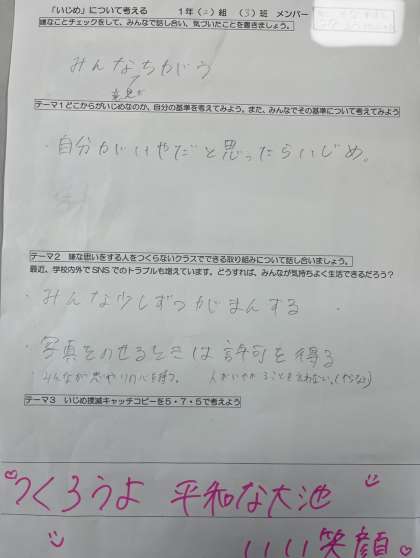 「いじめ」について考える 1年（2）組（3）班 メンバー
嫌なことチェックをして、みんなで話し合い、気づいたことを書きましょう。
みんなちがう
意見が
テーマ1 どこからがいじめなのか、自分の基準を考えてみよう。また、みんなでその基準について考えてみよう
・自分がいやだと思ったらいじめ。
テーマ2 嫌な思いをする人をつくらないクラスでできる取り組みについて話し合いましょう。
最近、学校内外でSNSでのトラブルも増えています。どうすれば、みんなが気持ちよく生活できるだろう？
・みんな少しずつがまんする
・写真をのせるときは許可を得る
・みんなが思いやりの心を持つ。 人がいやがることを言わない。
テーマ3 いじめ撲滅キャッチコピーを5・7・5で考えよう
つくろうよ 平和な大池
いい笑顔